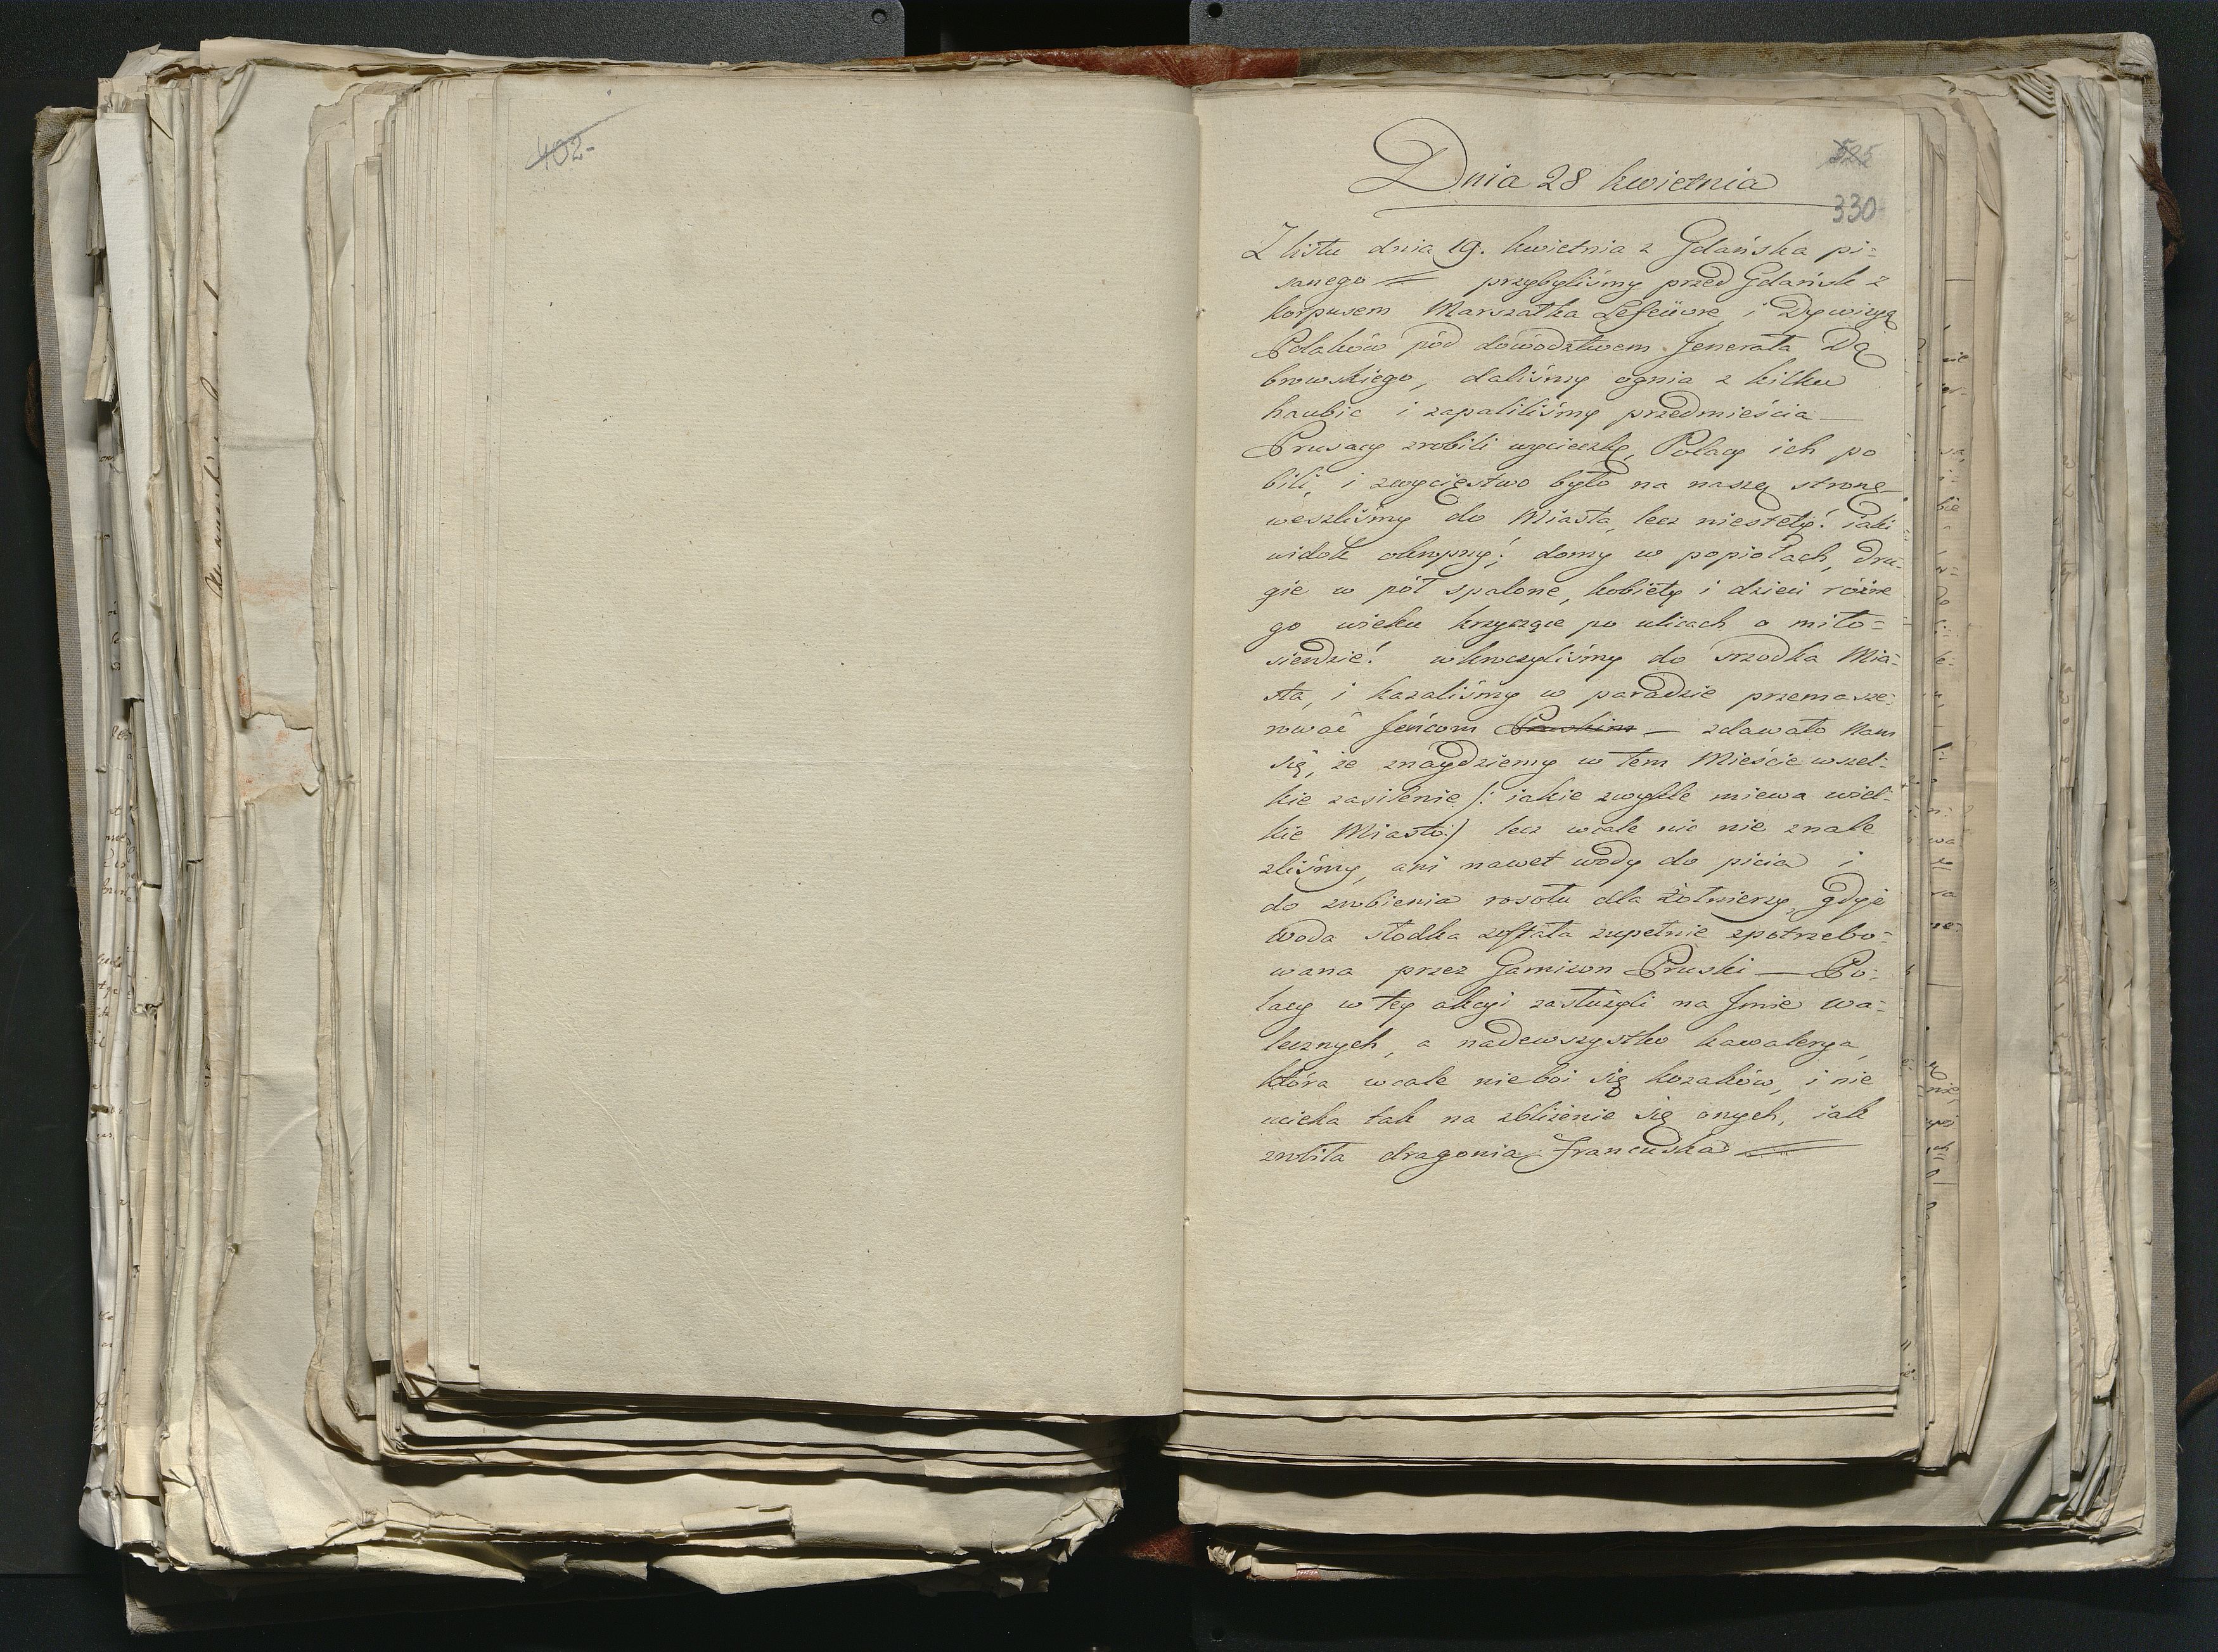 402-
Dnia 28 kwietnia
525
330
Z listu dnia 19. kwietnia z Gdańska pi=
sanego = przybyliśmy przed Gdańsk z
korpusem Marszałka Lefeüvre i Dywizyą
Polaków pód dówództwem Jenerała Dą
browskiego, daliśmy ognia z kilku
haubic i zapaliliśmy przedmieścia —
Prusacy zrobili wycieczkę, Polacy ich po
bili, i zwycięstwo było na naszą stronę
weszliśmy do Miasta, lecz niestety! iaki
widok okropny! domy w popiołach, dru=
gie w pół spalone, kobiety i dzieci różne
go wieku krzyczące po ulicach o miło=
sierdzie! wkroczyliśmy do srzodka Mia=
sta, i kazaliśmy w paradzie przemasze=
rować Jeńcom Pruskim — zdawało nam
się, że znaydziemy w tem Mieście wszel=
kie zasilenie /: iakie zwykle miewa wiel=
kie Miasto:/ lecz wcale nic nie znale
zliśmy, ani nawet wody do picia i
do zrobienia rosołu dla żołnierzy, gdyż
woda słodka została zupełnie zpotrzebo=
wana przez Garnizon Pruski — Po=
lacy w tey akcyi zasłużyli na Jmie wa=
lecznych, a nadewszystko kawalerya,
która wcale nieboi się kozaków, i nie
ucieka tak na zbliżenie się onych, iak
zrobiła dragonia francuska =